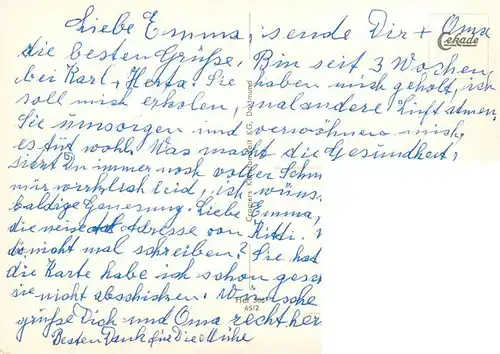 Liebe Emma, sende Dir + Oma
die besten Grüße. Bin seit 3 Wochen,
bei Karl + Herta. Sie haben mich geholt, ich
soll mich erholen, mal andere Luft atmen,
Sie umsorgen und verwöhnen mich,
es tut wohl. Was macht die Gesundheit,
Du immer noch voller Schm
mir wirklich leid, ich wüns
baldige Genesung. Liebe Emma,
die Adresse von Kitti.
nicht mal schreiben? Sie hat
die Karte habe ich schon gesc
sie nicht abschicken. Wünsche
grüße Dich und Oma recht her
Besten Dank für Die Mühe
Cekade
Cramers Kunstanstalt KG, Dortmund
65/2